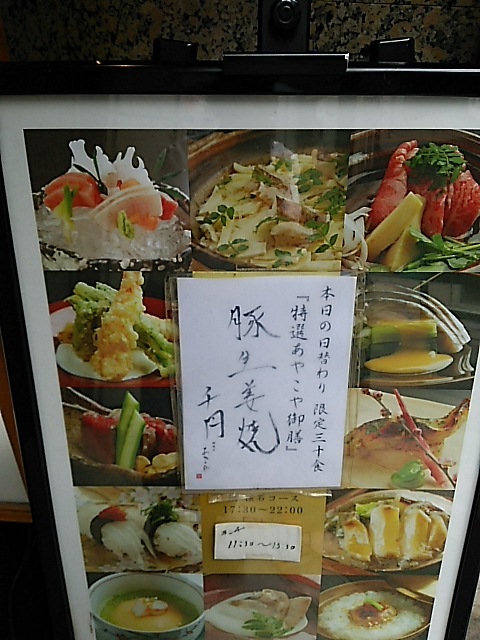 本日の日替わり 限定三十食
『特選あやこや御膳』
豚生姜焼
千円
コース
17:30～22:00
ランチ
11:30～13:30